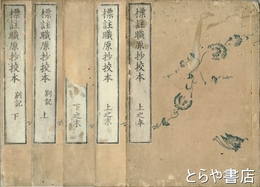 標註職原抄挍本 上之本
標註職原抄挍本 上之末
下之末
標註職原抄挍本 別記 上
標註職原抄挍本 別記 下
とらや書店